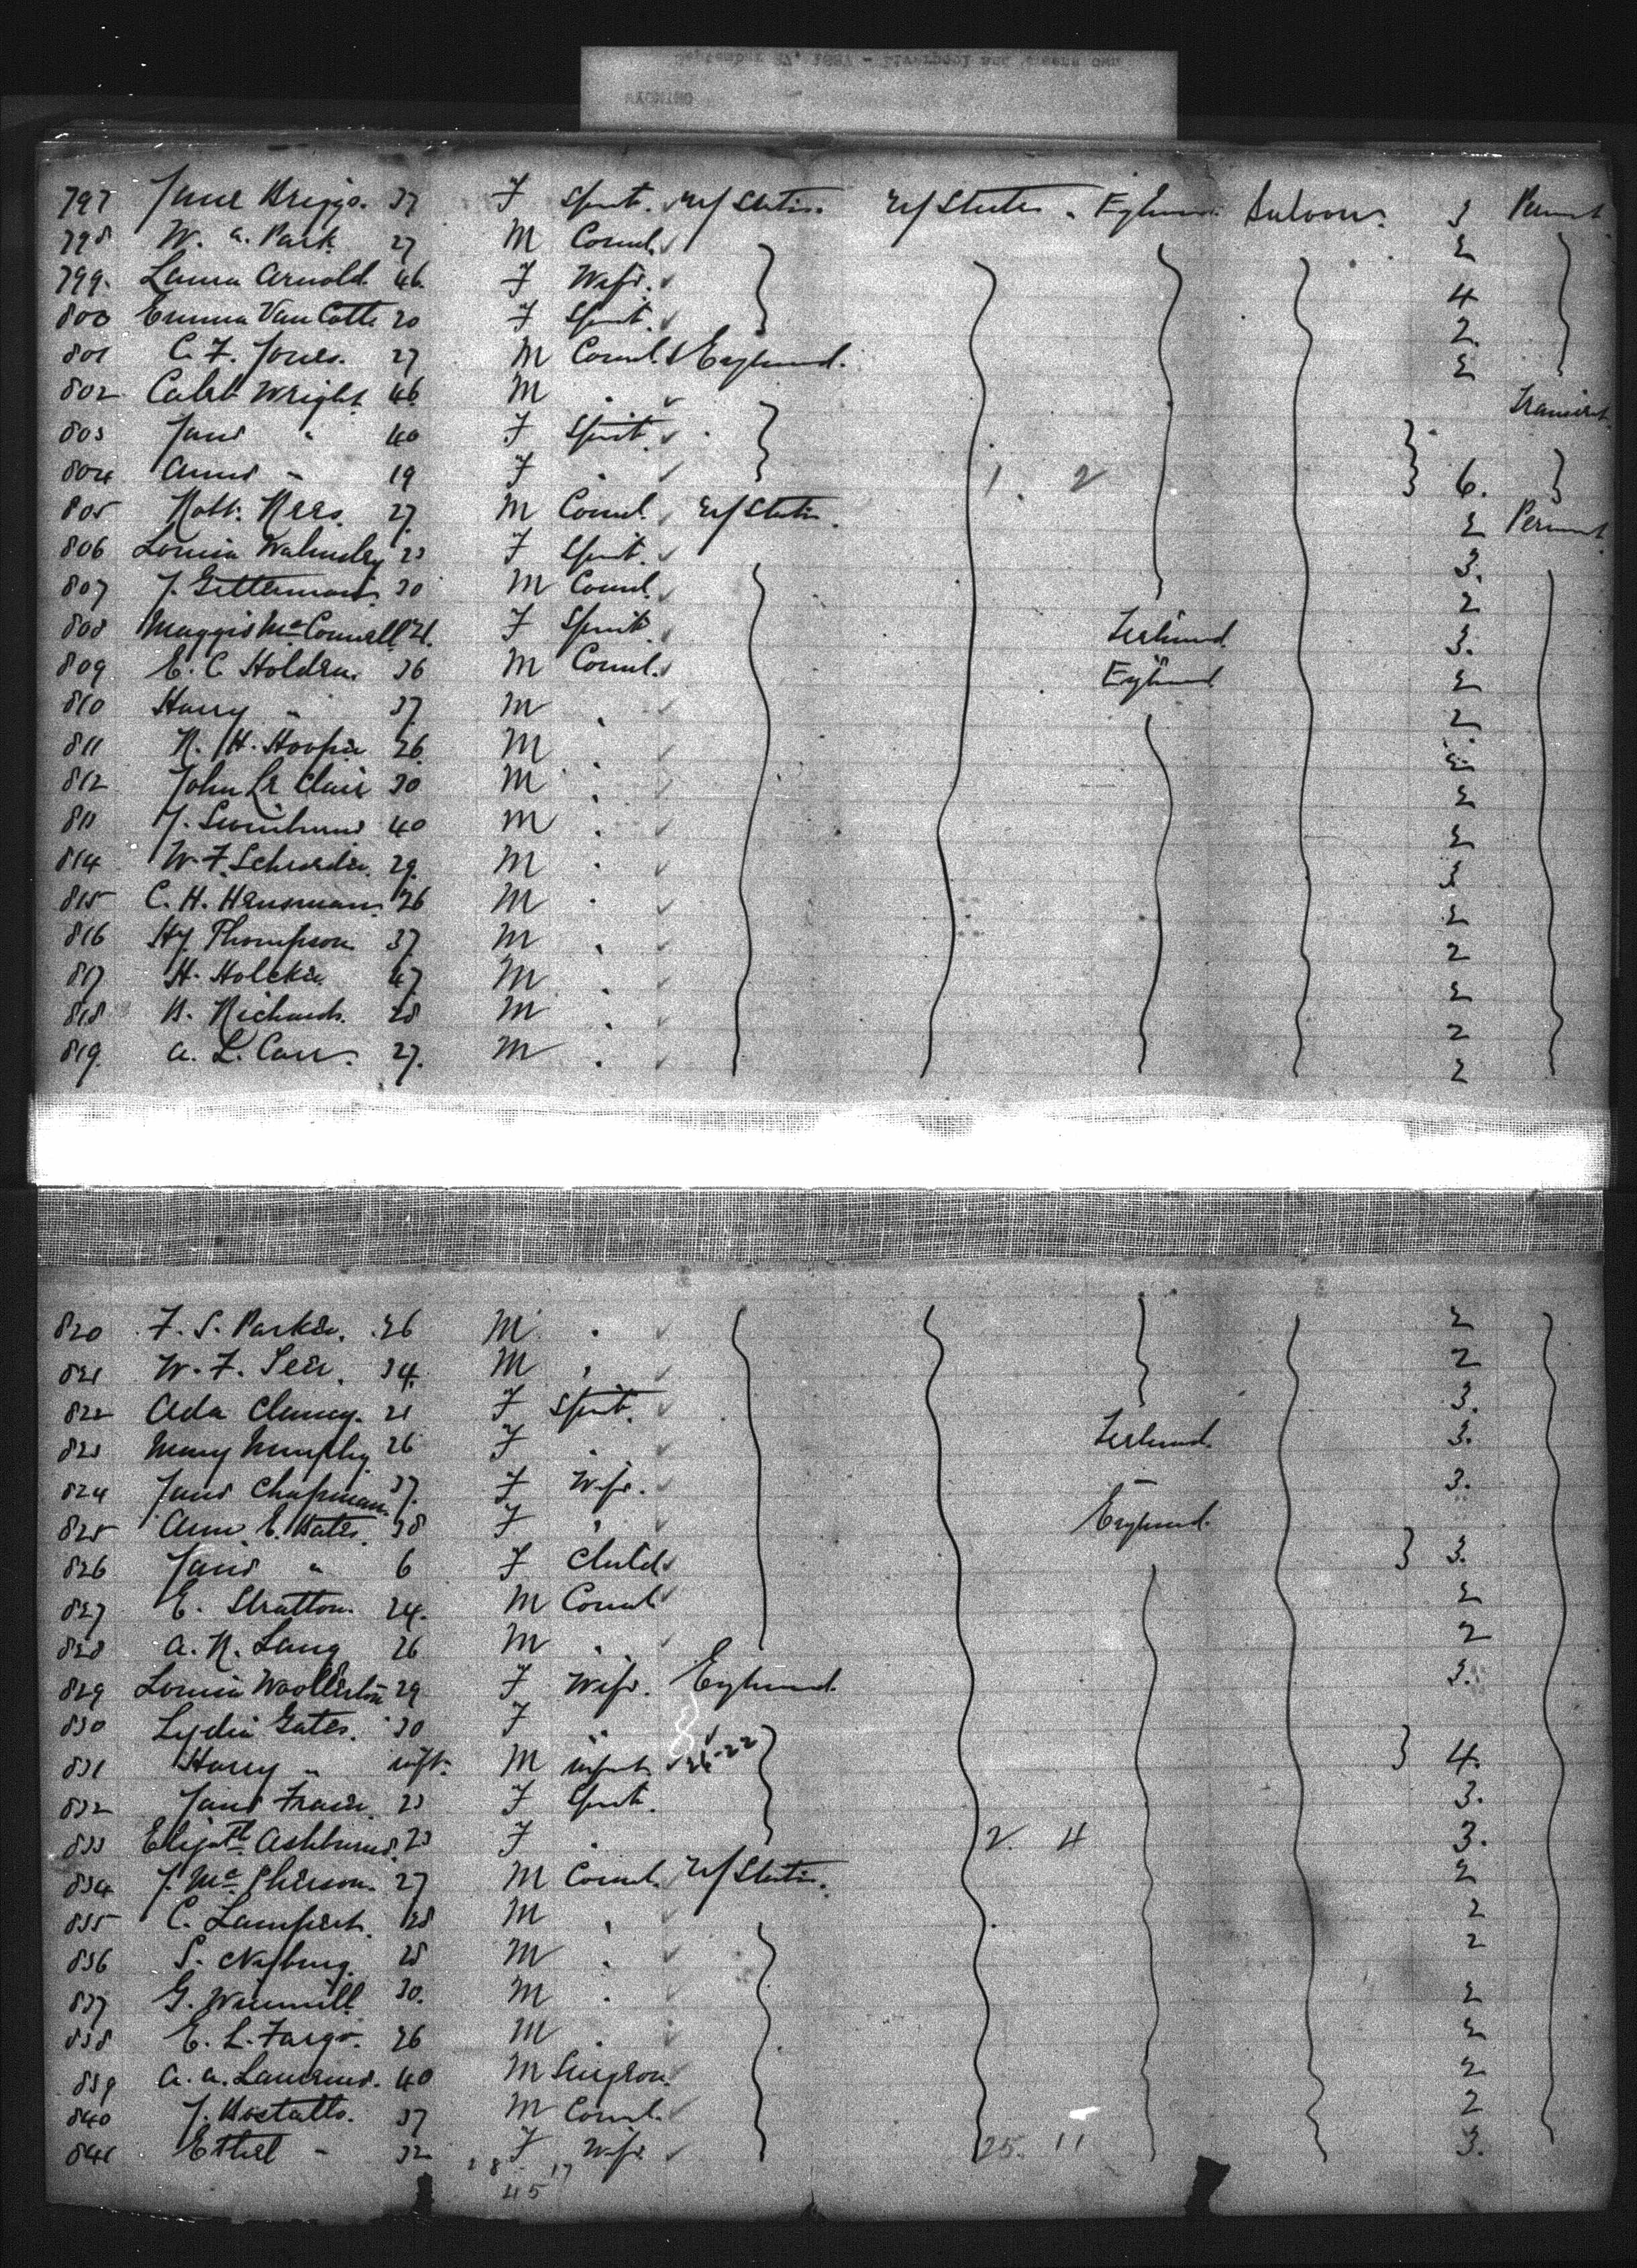 797 Jane Briggs. 37 F Spinst. U/States. U/States. England. Saloon. 3 Permt.
798 W. A. Park 27 M Coml. 2
799. Laura Arnold. 46. F Wife. 4
800 Emma Van Cott 20 F Spinst. 2.
801 C. F. Jones. 27 M Coml. England. 2
802 Caleb Wright 46 M . Transient
803 Jane " 40 F Spinst.
804 Annie " 19 F . 1. 2 6.
805 Robt. Rees. 27. M Coml. U/States. 2 Permnt.
806 Louisa Walmsley 23 F Spinst. 3.
807 J. Gitterman. 30 M Coml. 2
808 Maggie McConnell 21. F Spinst. Ireland. 3.
809 E. C. Holden. 36 M Coml. England 2
810 Harry " 37. M . 2
811 R. H. Hooper 26. M . 2
812 John Le Clair 30 M . 2
813 J. Swinburne 40 M . 2
814 W. F. Schroeder. 29. M . 3
815 C. H. Hausmann. 26 M . 2
816 Hy. Thompson 37. M . 2
817 H. Holcker 47. M . 2
818 B. Richards. 28 M . 2
819. A. L. Carr. 27. M . 2
820 F. S. Parker. 26 M . 2
821 W. F. Seer. 34. M . 2
822 Ada Clancy. 21 F Spinst. 3.
823 Mary Murphy. 26 F . Ireland. 3.
824 Jane Chapman 37. F Wife. 3.
825 Ann E. Bates. 38 F . England.
826 Jane " 6 F Child 3.
827 E. Stratton. 24. M Coml. 2
828 A. R. Lang 26 M . 2
829 Louisa Woollerton 29 F Wife. England. 3.
830 Lydia Gates. 30 F "
831 Harry " inft. M infant 4.
832 Jane Frazer. 23 F Spinst. 3.
833 Elizth. Ashburne. 23 F . 2. 4 3.
834 J. McPherson. 27 M Coml. U/States. 2
835 C. Lampert. 28 M . 2
836 S. 25 M . 2
837 G. Wimmill. 30. M . 2
838 E. L. Fargo. 26 M . 2
839 A. A. Laurence. 40 M Surgeon. 2
840 J. Bostatto. 37 M Coml. 2
841 Ethel " 32 F Wife. 25. 11 3.
28 17
45